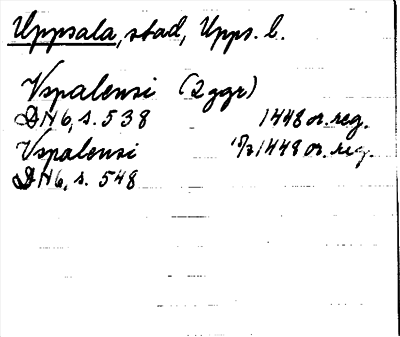 Uppsala, stad, Upps. l.
Vspalensi (2 ggr)
DN6, s. 538 1448 or. reg.
Vspalensi 1448 or. reg.
DN6, s. 548